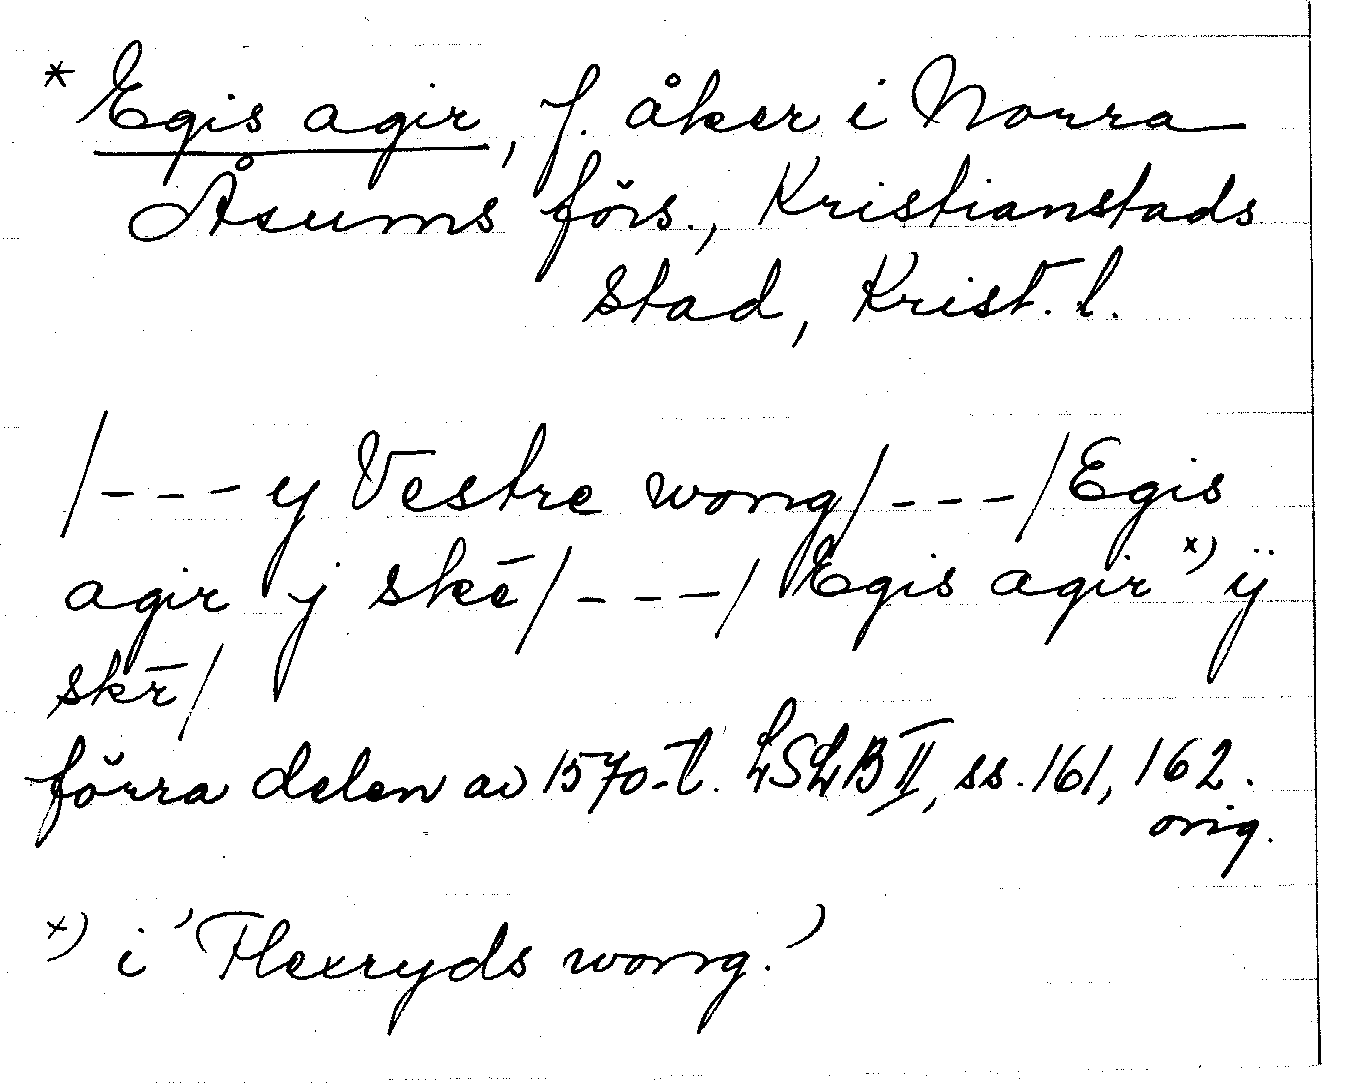 * Egis agir, f. åker i Norra
Åsums förs., Kristianstads
stad, Krist. l.
/--- y Vestre wong/---/Egis
agir j skē/---/Egis agir x) ÿ
skr̄/
förra delen av 1570-t. LSLB II, ss. 161, 162.
orig.
x) i 'Flexryds wong.'